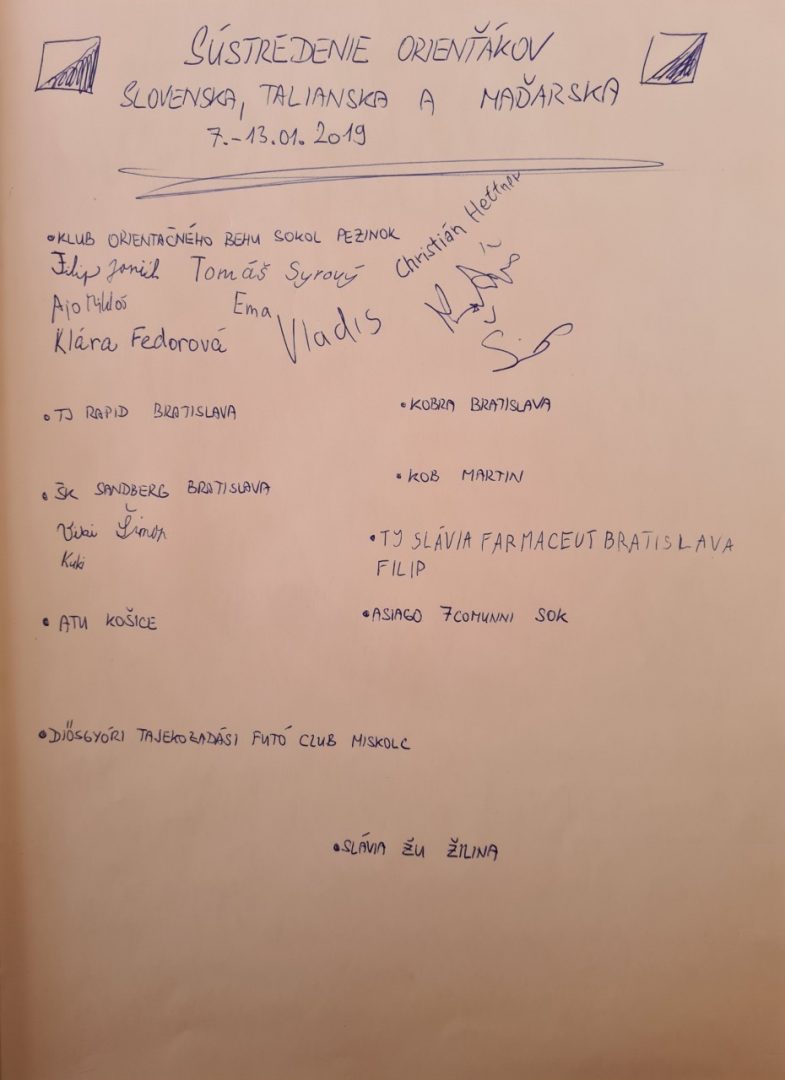 SÚSTREDENIE ORIENŤÁKOV
SLOVENSKA, TALIANSKA A MAĎARSKA
7.-13.01.2019
•KLUB ORIENTAČNÉHO BEHU SOKOL PEZINOK
Filip Tomáš Syrový Christián Hettner
Ajo Mikloš Ema
Klára Fedorová Vladis
•TJ RAPID BRATISLAVA
•KOBRA BRATISLAVA
•ŠK SANDBERG BRATISLAVA
Viki Šimon
Kuki
•KOB MARTIN
•TJ SLÁVIA FARMACEUT BRATISLAVA
FILIP
•ATU KOŠICE
•ASIAGO 7COMUNNI SOK
•DIÓSGYÓRI TAJEKOZADÁSI FUTÓ CLUB MISKOLC
•SLÁVIA ŽU ŽILINA